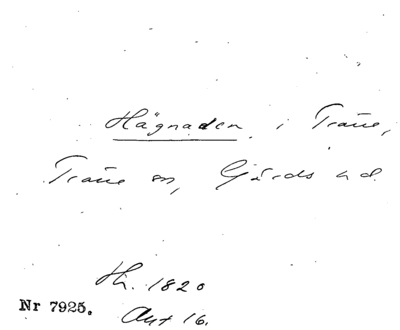 Hägnaden i Träne,
Träne sn, Gärds hd.
Hh. 1820
Akt 16.
Nr 7925.